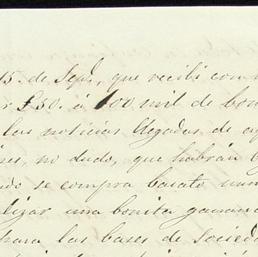 15. de Sepb., que recibi con
r £50. á 100 mil de bon
las noticias llegadas de aq
nes, no dudo, que habrán
do se compra barato
lizar una bonita ganan
para las bases de socied